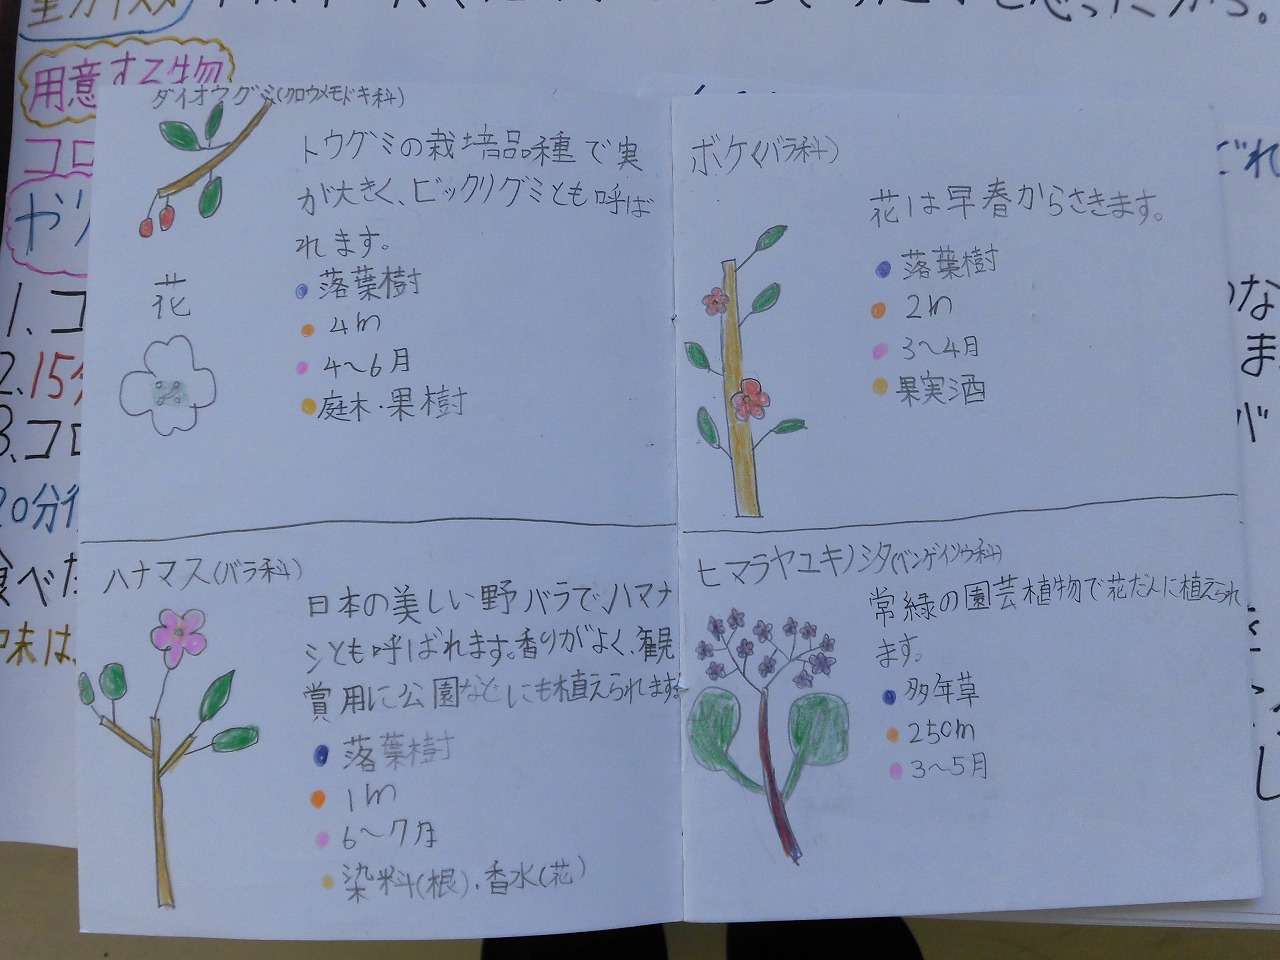 用意する物
ダイオウグミ(クロウメモドキ科)
トウグミの栽培品種で実
が大きく、ビックリグミとも呼ば
れます。
落葉樹
4m
4〜6月
庭木・果樹
花
ボケ(バラ科)
花は早春からさきます。
落葉樹
2m
3〜4月
果実酒
ハナマス(バラ科)
日本の美しい野バラで、ハマナ
シとも呼ばれます。香りがよく、観
賞用に公園などにも植えられます。
落葉樹
1m
6〜7月
染料(根)、香水(花)
ヒマラヤユキノシタ(バンゲイジウ科)
常緑の園芸植物で花だんに植えられ
ます。
多年草
25cm
3〜5月
コロ
1、コ
2、15分
3、コロ
20分後
食べた
味は、